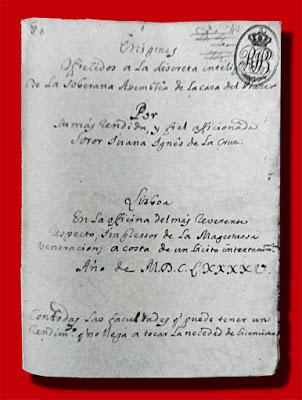 Enigmas
Ofrecidos a la discreta inteli
De la Soberana Asemblea de La casa del Placer
Por
Su más Rendida, y fiel Afficionada
Soror Iuana Ignes de la Crux.
Lisboa
En la officina del más Reverente
Respecto, Impressor de la Magestuosa
Veneracion; a costa de un licito intertenim.
Año de M.D.C.LXXXXV.
Con todas las facultades q̃ puede tener un
Rendim.º q̃ no llega a tocar la necedad de licencioso